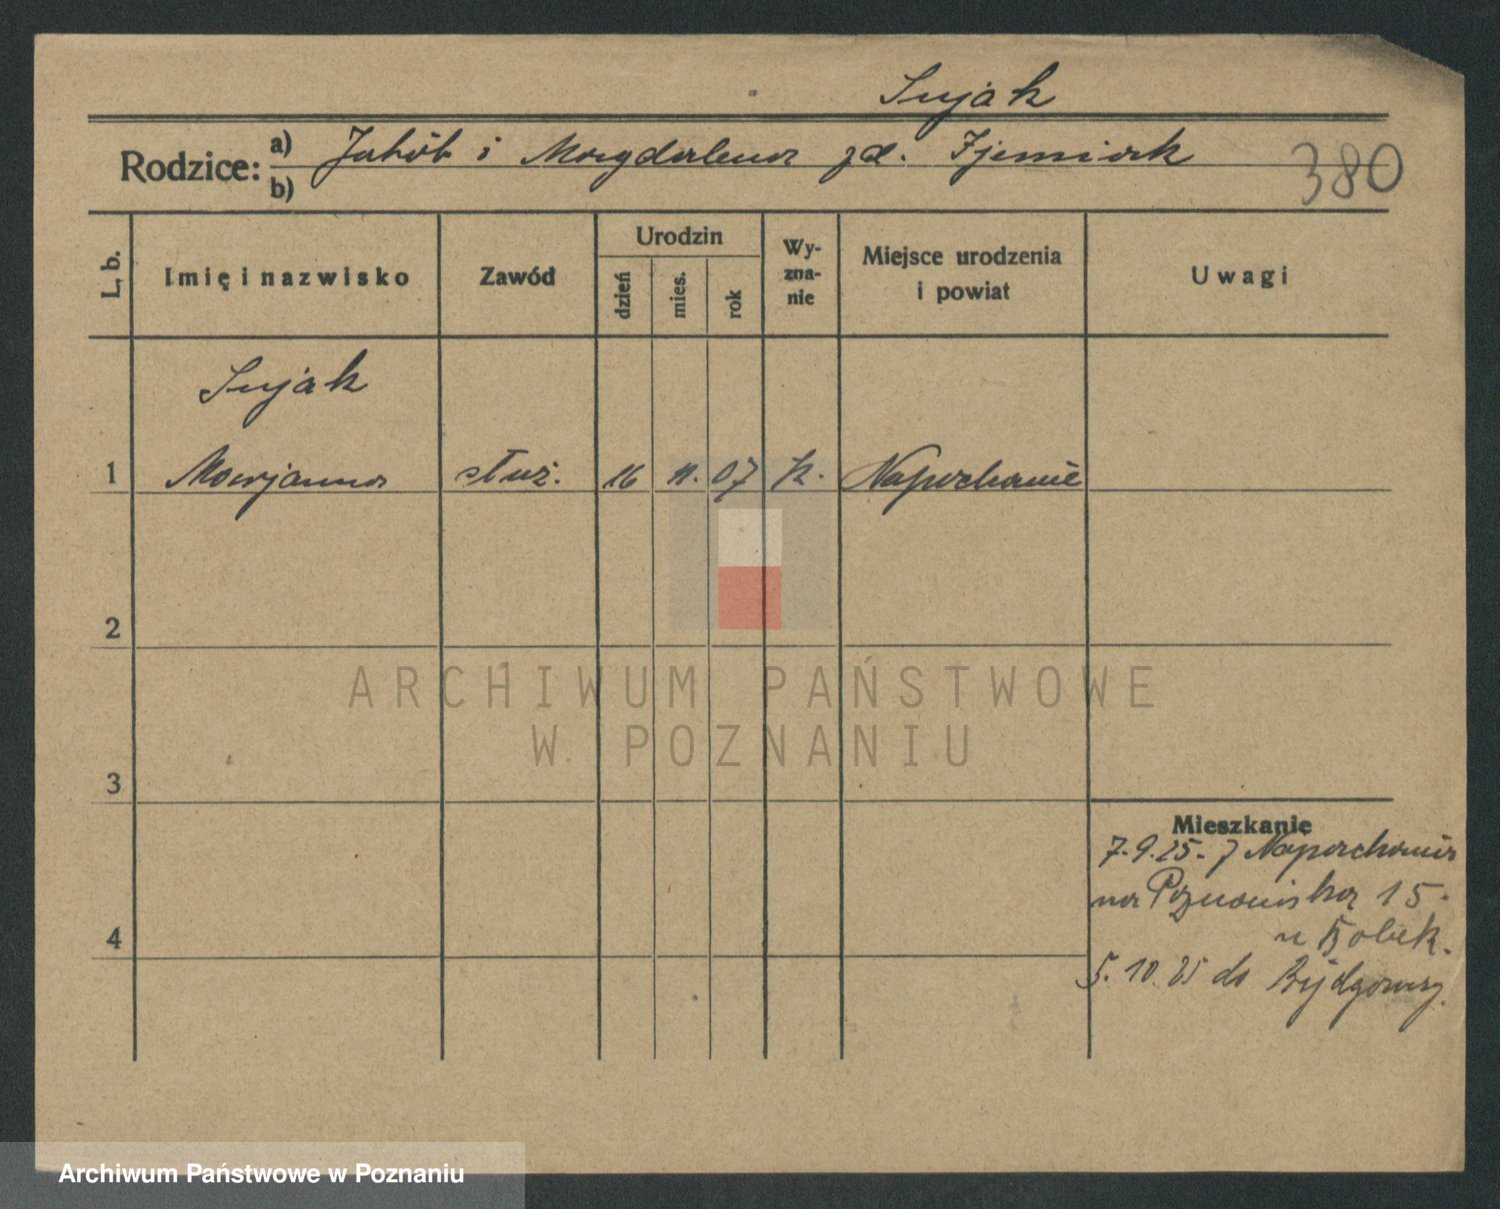 Sujak
Rodzice: a) Jakób i Magdalena zd.
b)
380
L. b.
Imię i nazwisko
Zawód
Urodzin
dzień
mies.
rok
Wy-
zna-
nie
Miejsce urodzenia
i powiat
Uwagi
Sujak
1 Marjanna służ. 16 11. 07 k. Napachanie
2
3
4
ARCHIWUM PAŃSTWOWE
W POZNANIU
Mieszkanie
7.9.25. z Napachania
na Poznańską 15.
u
5.10.25 do Bydgoszczy.
Archiwum Państwowe w Poznaniu